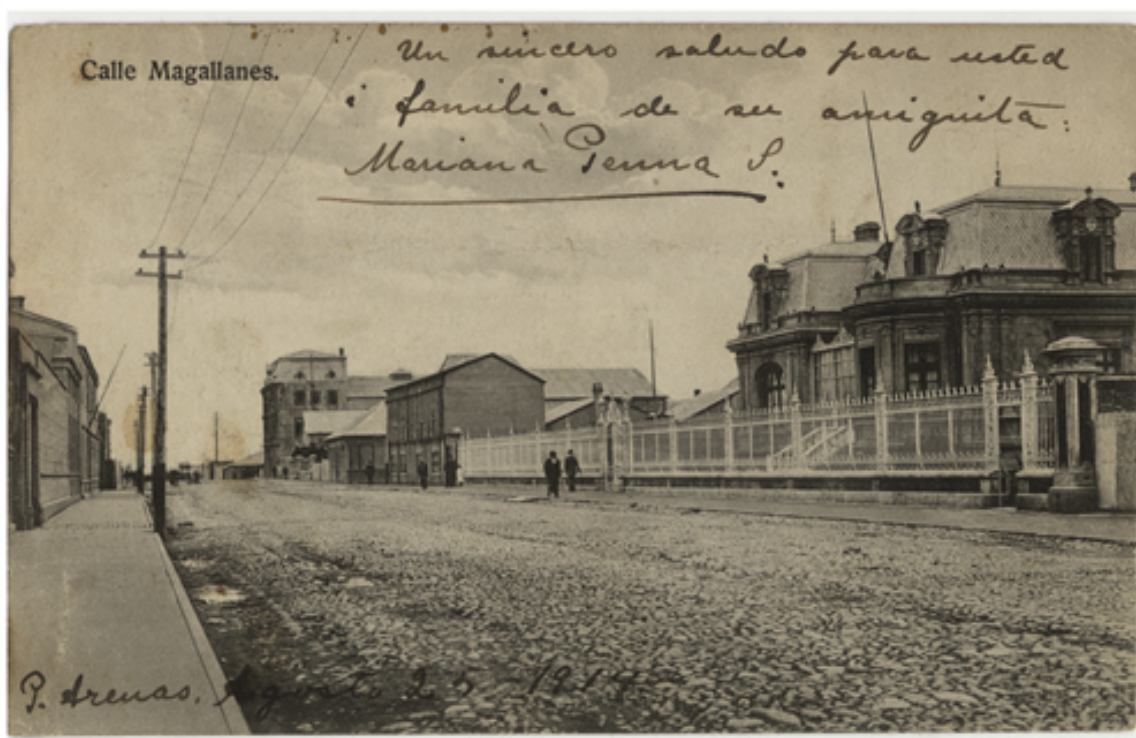 Calle Magallanes.
Un sincero saludo para usted
i familia de su amiguita.
Mariana Penna S.
P. Arenas, Agosto 25 1914